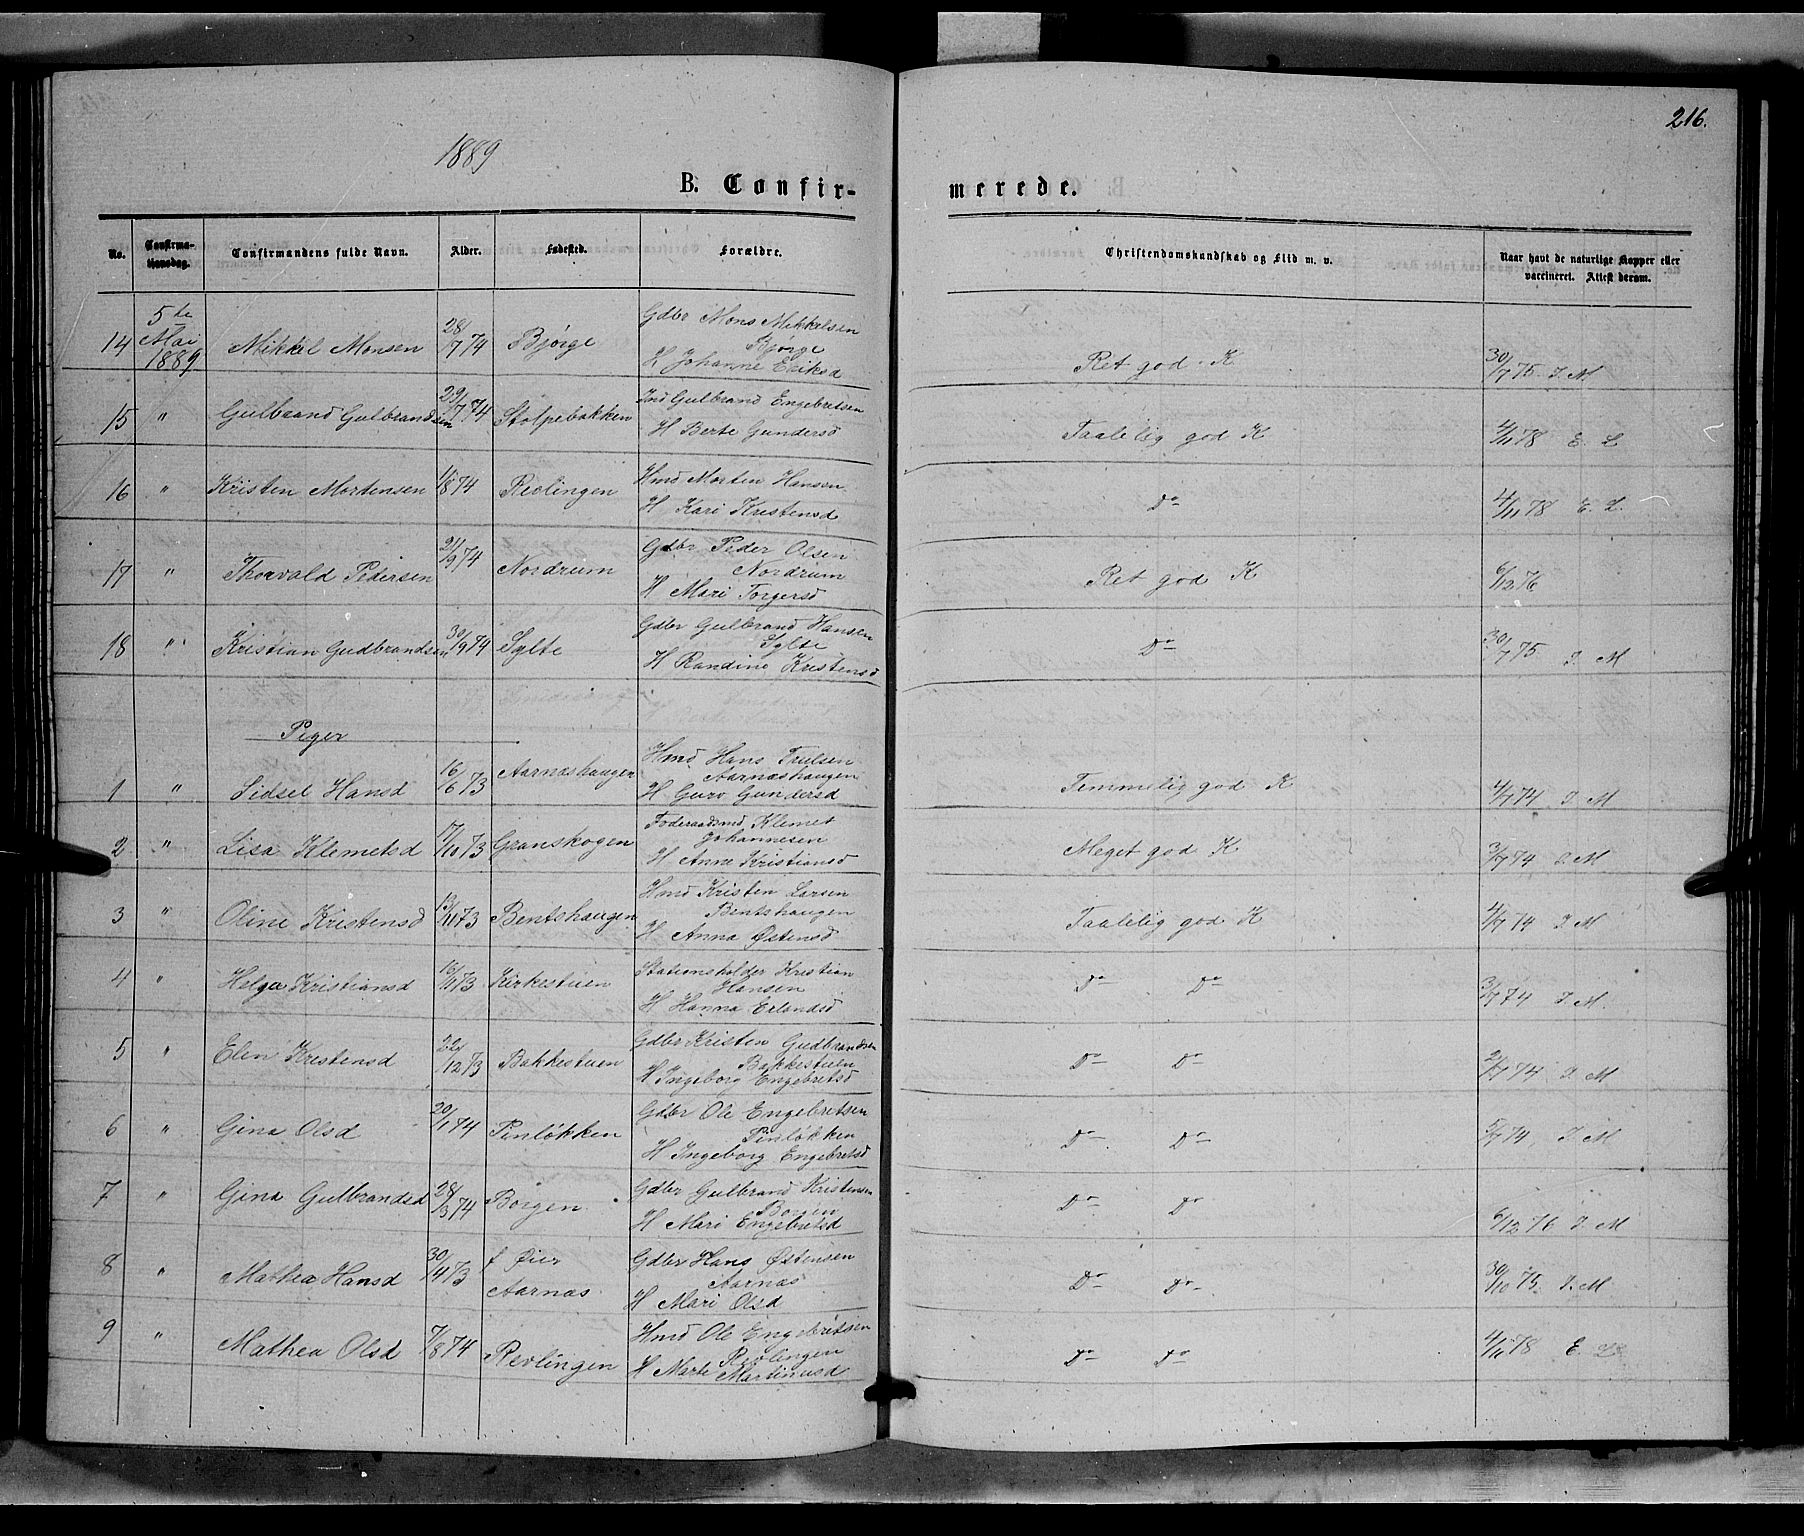 216.
1889
B. Confirmerede.
No. Confirmationsdag. Confirmandens fulde Navn. Alder. Fødested. Forældre. Christendomskundskab og Flid m. v. Naar havt de naturlige Kopper eller vaccineret. Attest derom.
14 5te Mai 1889 Mikkel Monsen 28/7 74 Bjørge Gdbr Mons Mikkelsen Bjørge H Johanne Eriksd Ret god K 30/7 75 J. M
15 " Gulbrand Gulbrandsen 29/7 74 Stolpebakken Ind Gulbrand Engebretsen H Berte Gundersd Taalelig god K 4/11 78 E. L
16 " Kristen Mortensen 1/8 74 Revlingen Hmd Morten Hansen H Kari Kristensd Do 4/11 78 E. L.
17 " Thorvald Pedersen 21/9 74 Nordrum Gdbr Peder Olsen Nordrum H Mari Torgersd Ret god K 6/12 76
18 " Kristian Gudbrandsen 30/9 74 Sylte Gdbr Gulbrand Hansen Sylte H Randine Kristensd Do 30/7 75 J. M
Piger
1 " Sidsel Hansd 16/6 73 Aarnæshaugen Hmd Hans Trulsen Aarnæshaugen H Guro Gundersd Temmelig god K 4/7 74 J. M
2 " Lisa Klemetsd 17/10 73 Granskogen Føderaadsmd Klemet Johannesen H Anne Kristiansd Meget god K 3/7 74 J. M
3 " Oline Kristensd 13/11 73 Bentshaugen Hmd Kristen Larsen Bentshaugen H Anna Østensd Taalelig god K 4/7 74 J. M
4 " Helga Kristiansd 16/11 73 Kirkestuen Stationsholder Kristian Hansen H Hanna Erlandsd Do Do 3/7 74 J. M
5 " Elen Kristensd 22/12 73 Bakkestuen Gdbr Kristen Gudbrandsen Bakkestuen H Ingeborg Engebretsd Do Do 2/7 74 J. M
6 " Gina Olsd 20/1 74 Pinløkken Gdbr Ole Engebretsen Pinløkken H Ingeborg Engebretsd Do Do 5/7 74 J. M
7 " Gina Gulbrandsd 28/3 74 Borgen Gdbr Gulbrand Kristensen Borgen H Mari Engebretsd Do Do 6/12 76 J. M
8 " Mathea Hansd 30/4 73 f Øier Aarnæs Gdbr Hans Østensen Aarnæs H Mari Olsd Do Do 30/10 75 J. M
9 " Mathea Olsd 7/8 74 Revlingen Hmd Ole Engebretsen Revlingen H Marte Martinusd Do Do 4/11 78 E. L